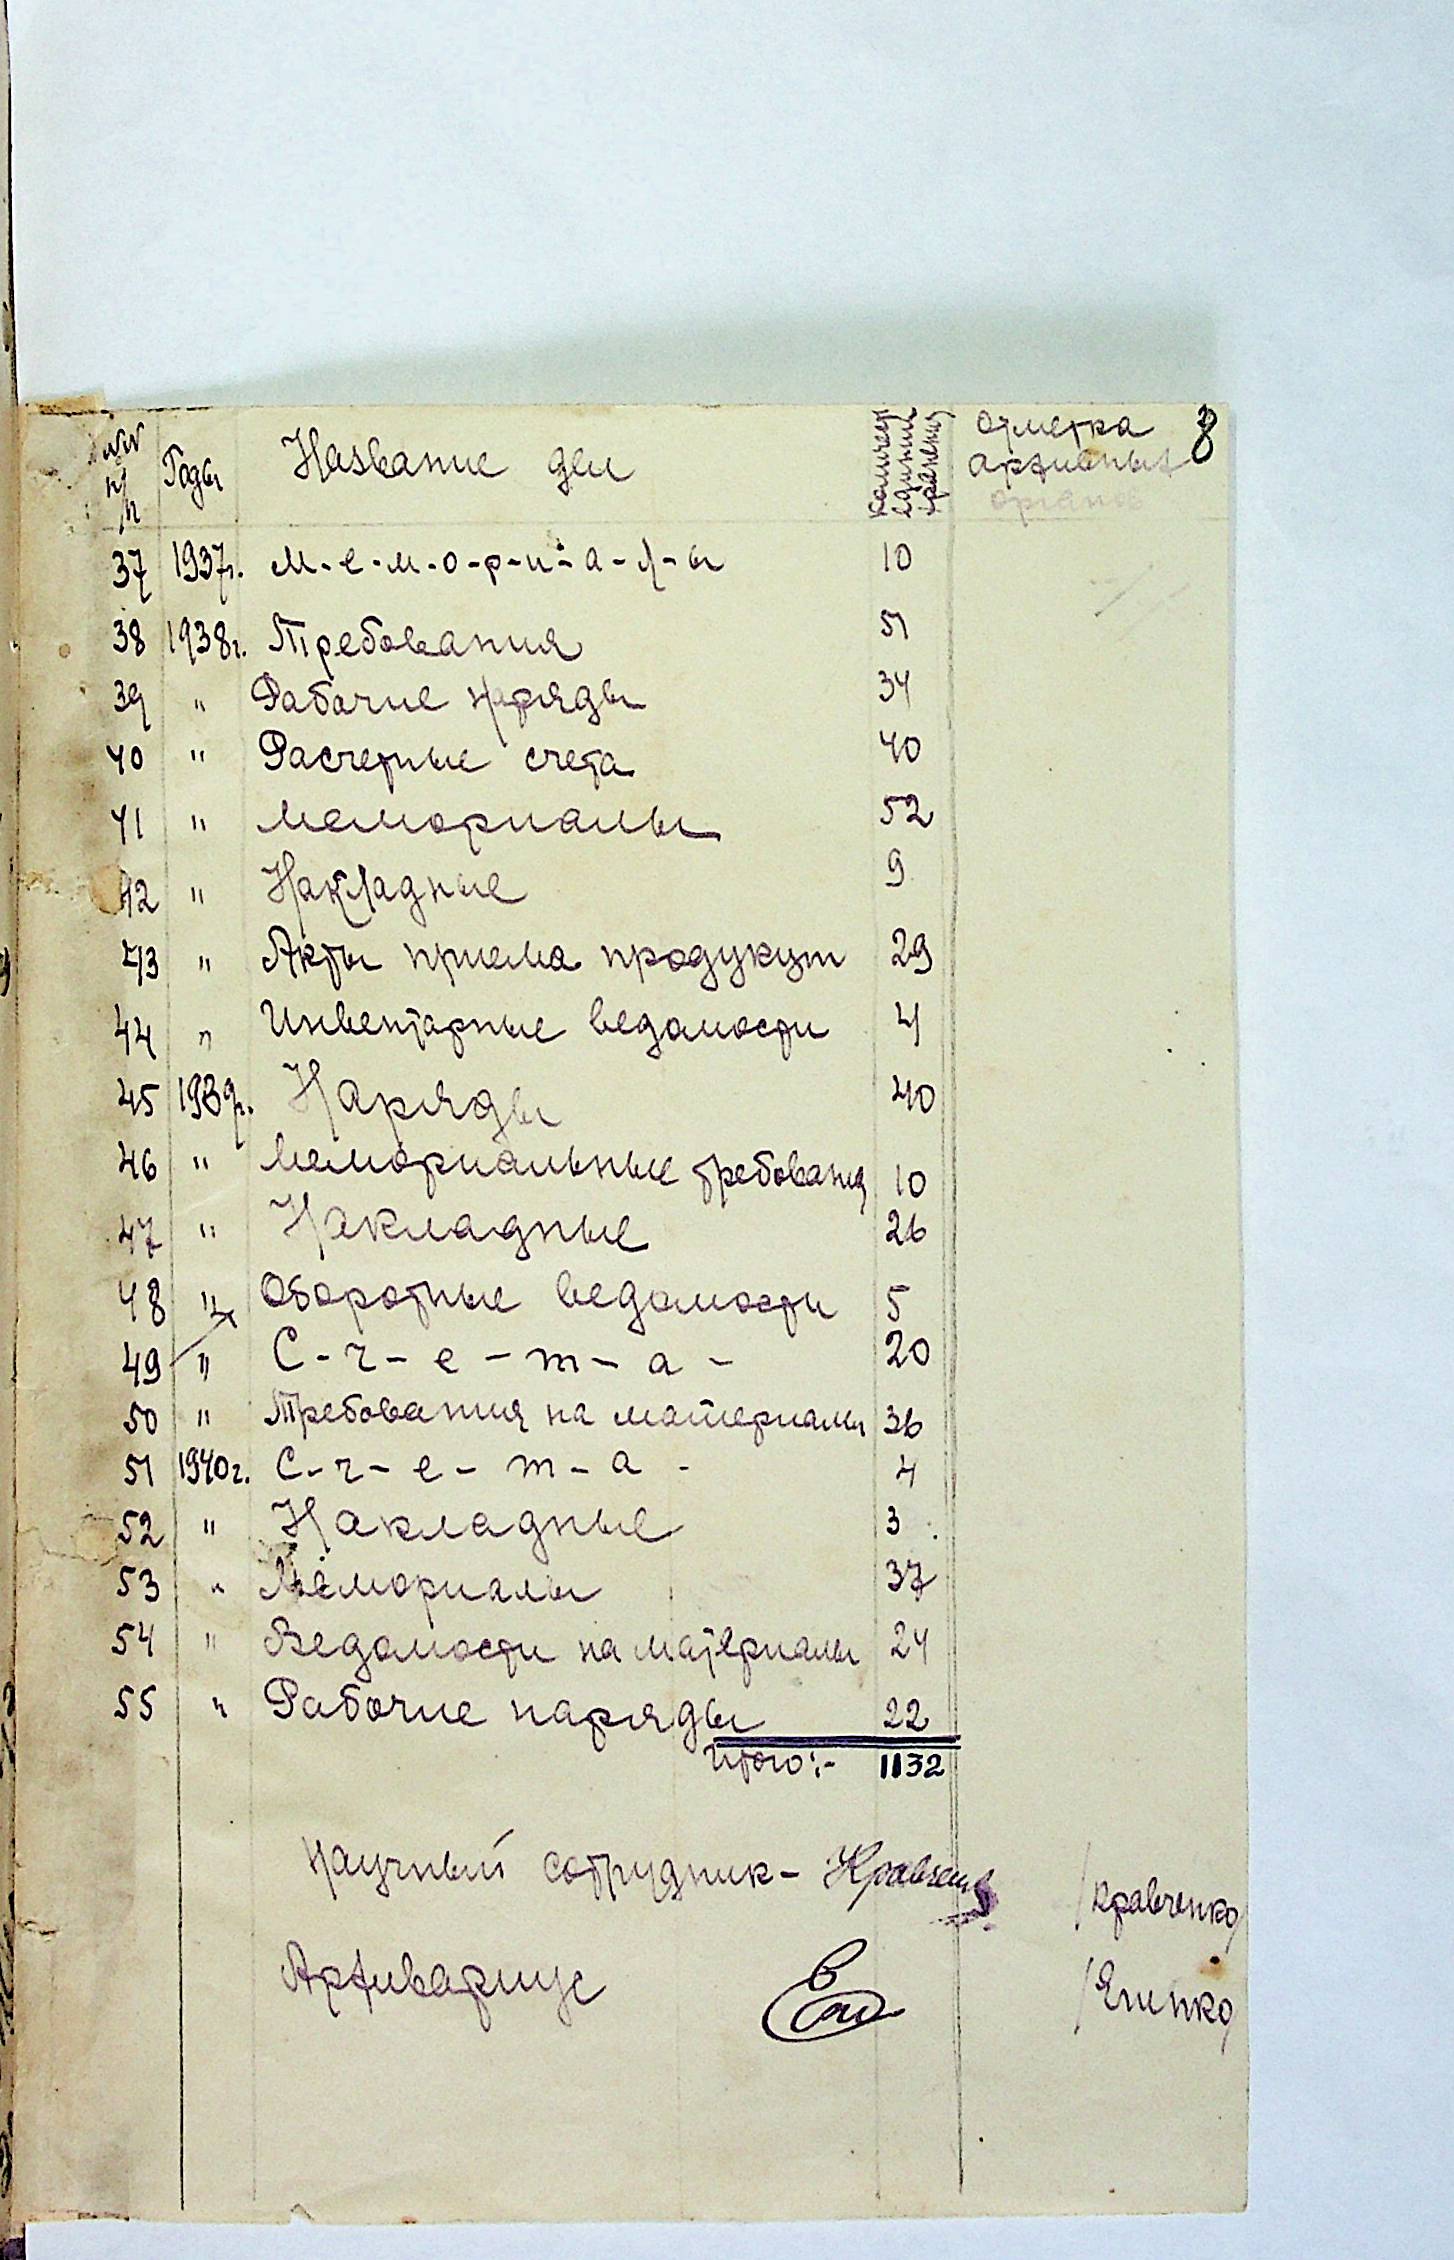 №№ п/п Годы Название дел Количест. единиц хранения Отметка архивных органов 8
37 1937г. М-е-м-о-р-и-а-л-ы 10
38 1938г. Требования 51
39 " Рабочие наряды 34
40 " Расчетные счета 40
41 " Мемориалы 52
42 " Накладные 9
43 " Акты приема продукции 29
44 " Инвентарные ведомости 4
45 1939г. Наряды 40
46 " Мемориальные требования 10
47 " Накладные 26
48 " Оборотные ведомости 5
49 " С-ч-е-т-а- 20
50 " Требования на материалы 36
51 1940г. С-ч-е-т-а- 4
52 " Накладные 3
53 " Мемориалы 37
54 " Ведомости на материалы 24
55 " Рабочие наряды 22
Итого:- 1132
Научный сотрудник- Кравченко /Кравченко/
Архивариус /Епенко/